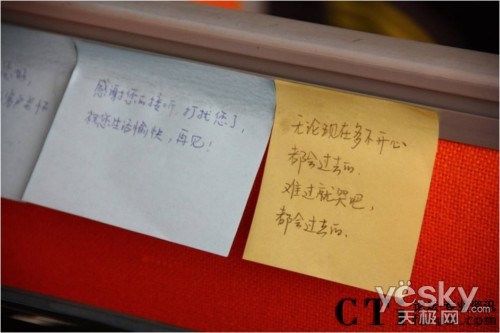 感谢您的接听,打扰您了,
祝您生活愉快,再见!
无论现在多不开心
都会过去的.
难过就哭吧,
都会过去的.
CT
yesky
天极网.com